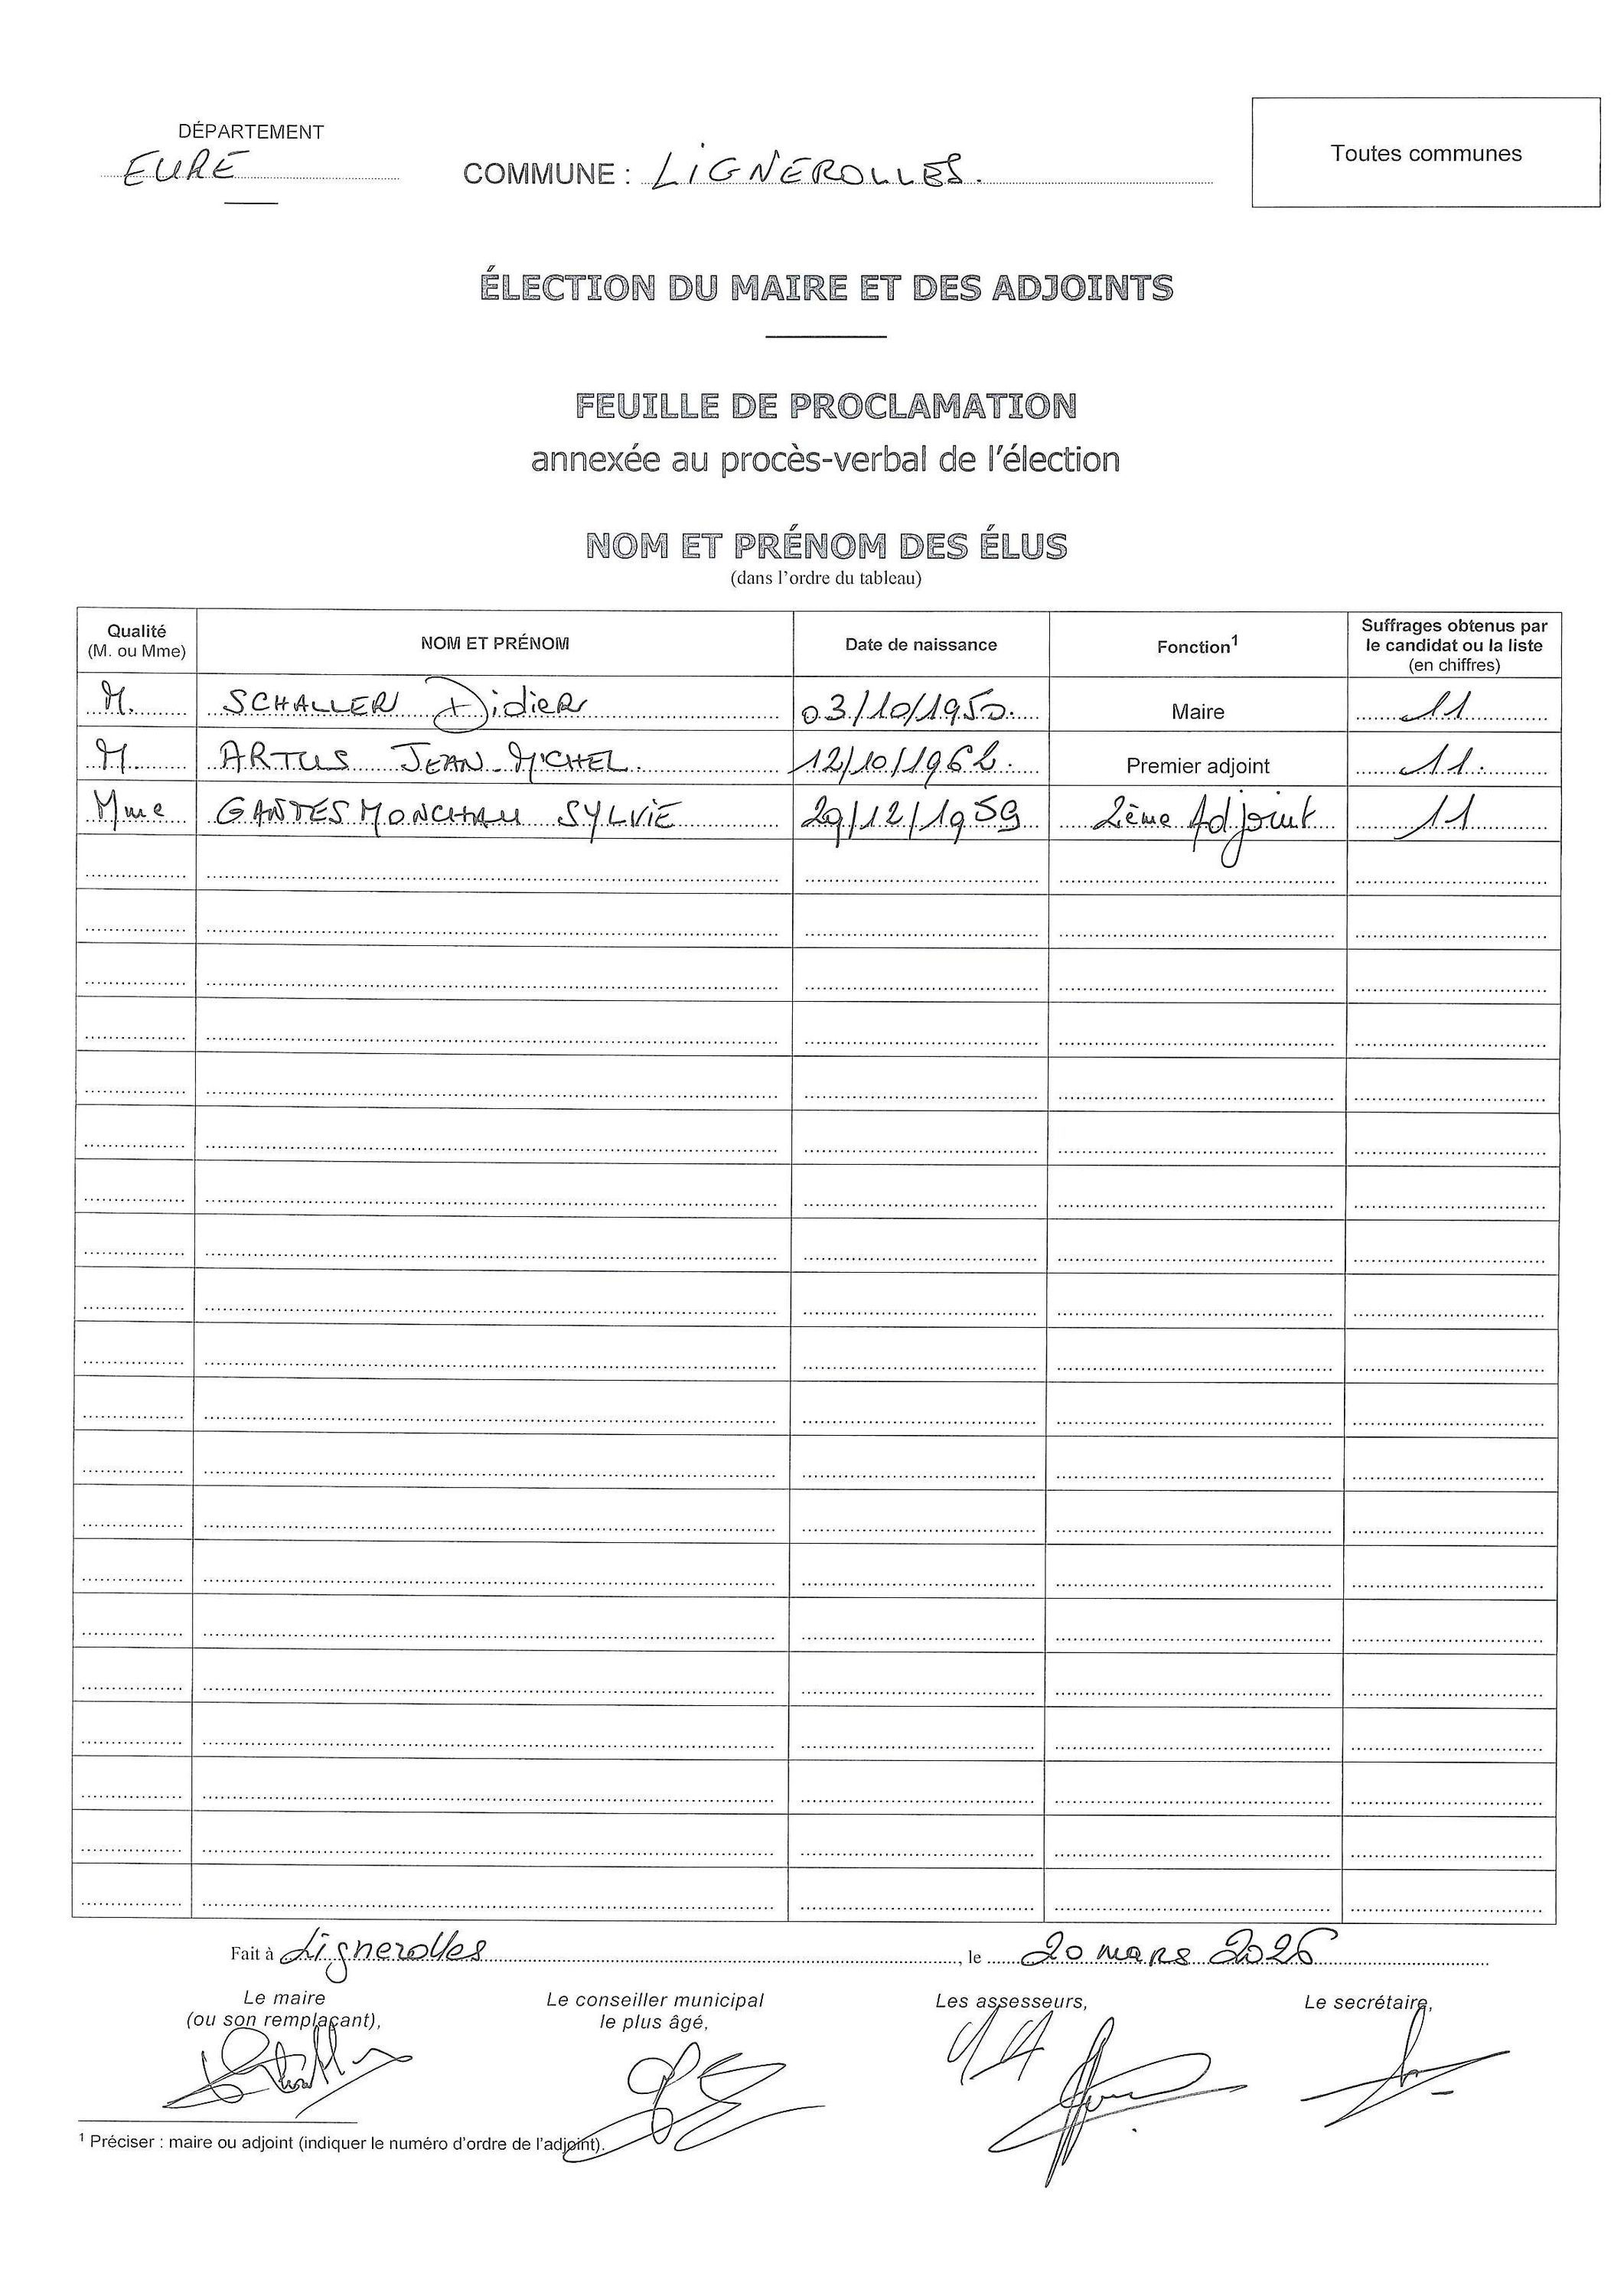 DÉPARTEMENT
EURE
COMMUNE : LIGNEROLLES.
Toutes communes
ÉLECTION DU MAIRE ET DES ADJOINTS
FEUILLE DE PROCLAMATION
annexée au procès-verbal de l'élection
NOM ET PRÉNOM DES ÉLUS
(dans l'ordre du tableau)
Qualité (M. ou Mme) NOM ET PRÉNOM Date de naissance Fonction¹ Suffrages obtenus par le candidat ou la liste (en chiffres)
M. SCHALLER Didier 03/10/1950. Maire 11
M. ARTUS JEAN-MICHEL. 12/10/1962. Premier adjoint 11.
Mme GANTES MONCHAU SYLVIE 29/12/1959 2ème Adjoint 11
Fait à Lignerolles, le 20 mars 2026
Le maire (ou son remplaçant),
Le conseiller municipal le plus âgé,
Les assesseurs,
Le secrétaire,
¹ Préciser : maire ou adjoint (indiquer le numéro d'ordre de l'adjoint).